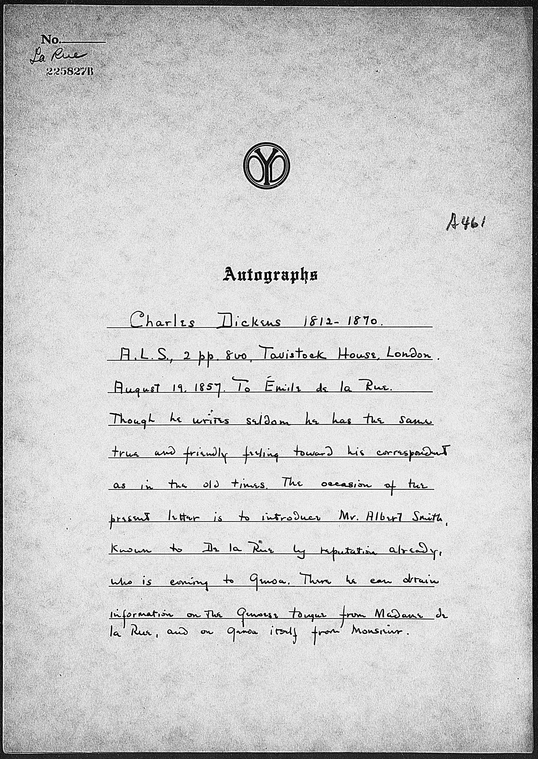 No.
La Rue
225827B
A461
Autographs
Charles Dickens 1812-1870.
A.L.S., 2 pp. 8vo, Tavistock House, London.
August 19, 1857. To Émile de la Rue.
Though he writes seldom he has the same
true and friendly feeling toward his correspondent
as in the old times. The occasion of the
present letter is to introduce Mr. Albert Smith,
known to De la Rue by reputation already,
who is coming to Genoa. There he can obtain
information on the Genoese tongue from Madame de
la Rue, and on Genoa itself from Monsieur.